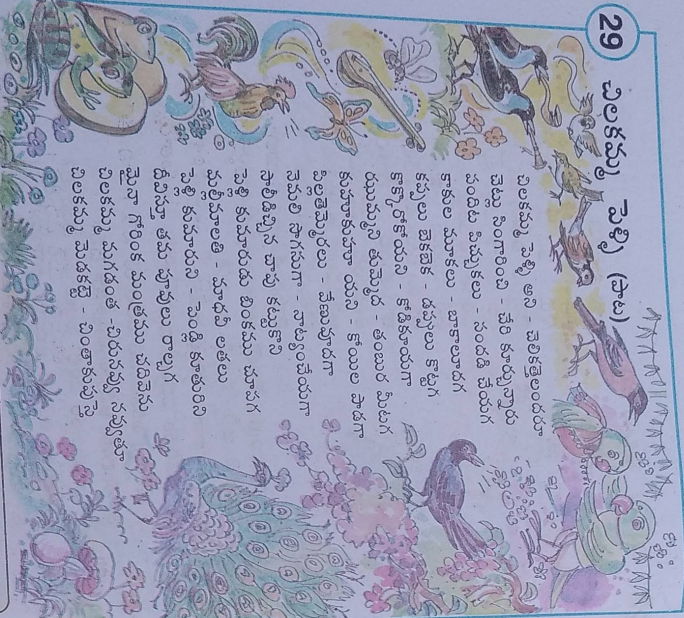 29
చిలకమ్మ పెళ్ళి (పాట)
చిలకమ్మ పెళ్ళి అని - చెలికత్తెలందరూ
చెట్టు సింగారించి - చేరి కూర్చున్నారు
పందిట పిచ్చుకలు - సందడి చేయగ
కాకుల మూకలు - బాకాలూదగ
కప్పలు బెకబెక - డప్పులు కొట్టగ
కొక్కొరోకోయని - కోడికూయగా
ఝుమ్మని తుమ్మెద - తంబుర మీటగ
కుహూకుహూ యని - కోయిల పాడగా
పిల్లతెమ్మెరలు - వేణువూదగా
నెమలి సొగసుగా - నాట్యంచేయగా
సాలీడిచ్చిన చాపు కట్టుకొని
పెళ్లి కుమారుడు బింకము చూపగ
మల్లీమాలతి - మాధవీ లతలు
పెళ్లి కుమారుని - పెండ్లి కూతురిని
దీవిస్తూ తమ పూవులు రాల్చగ
మైనా గోరింక మంత్రము చదివెను
చిలకమ్మ మగడంత చిరునవ్వు నవ్వుతూ
చిలకమ్మ మెడకట్టె - చింతాకుపుస్తె